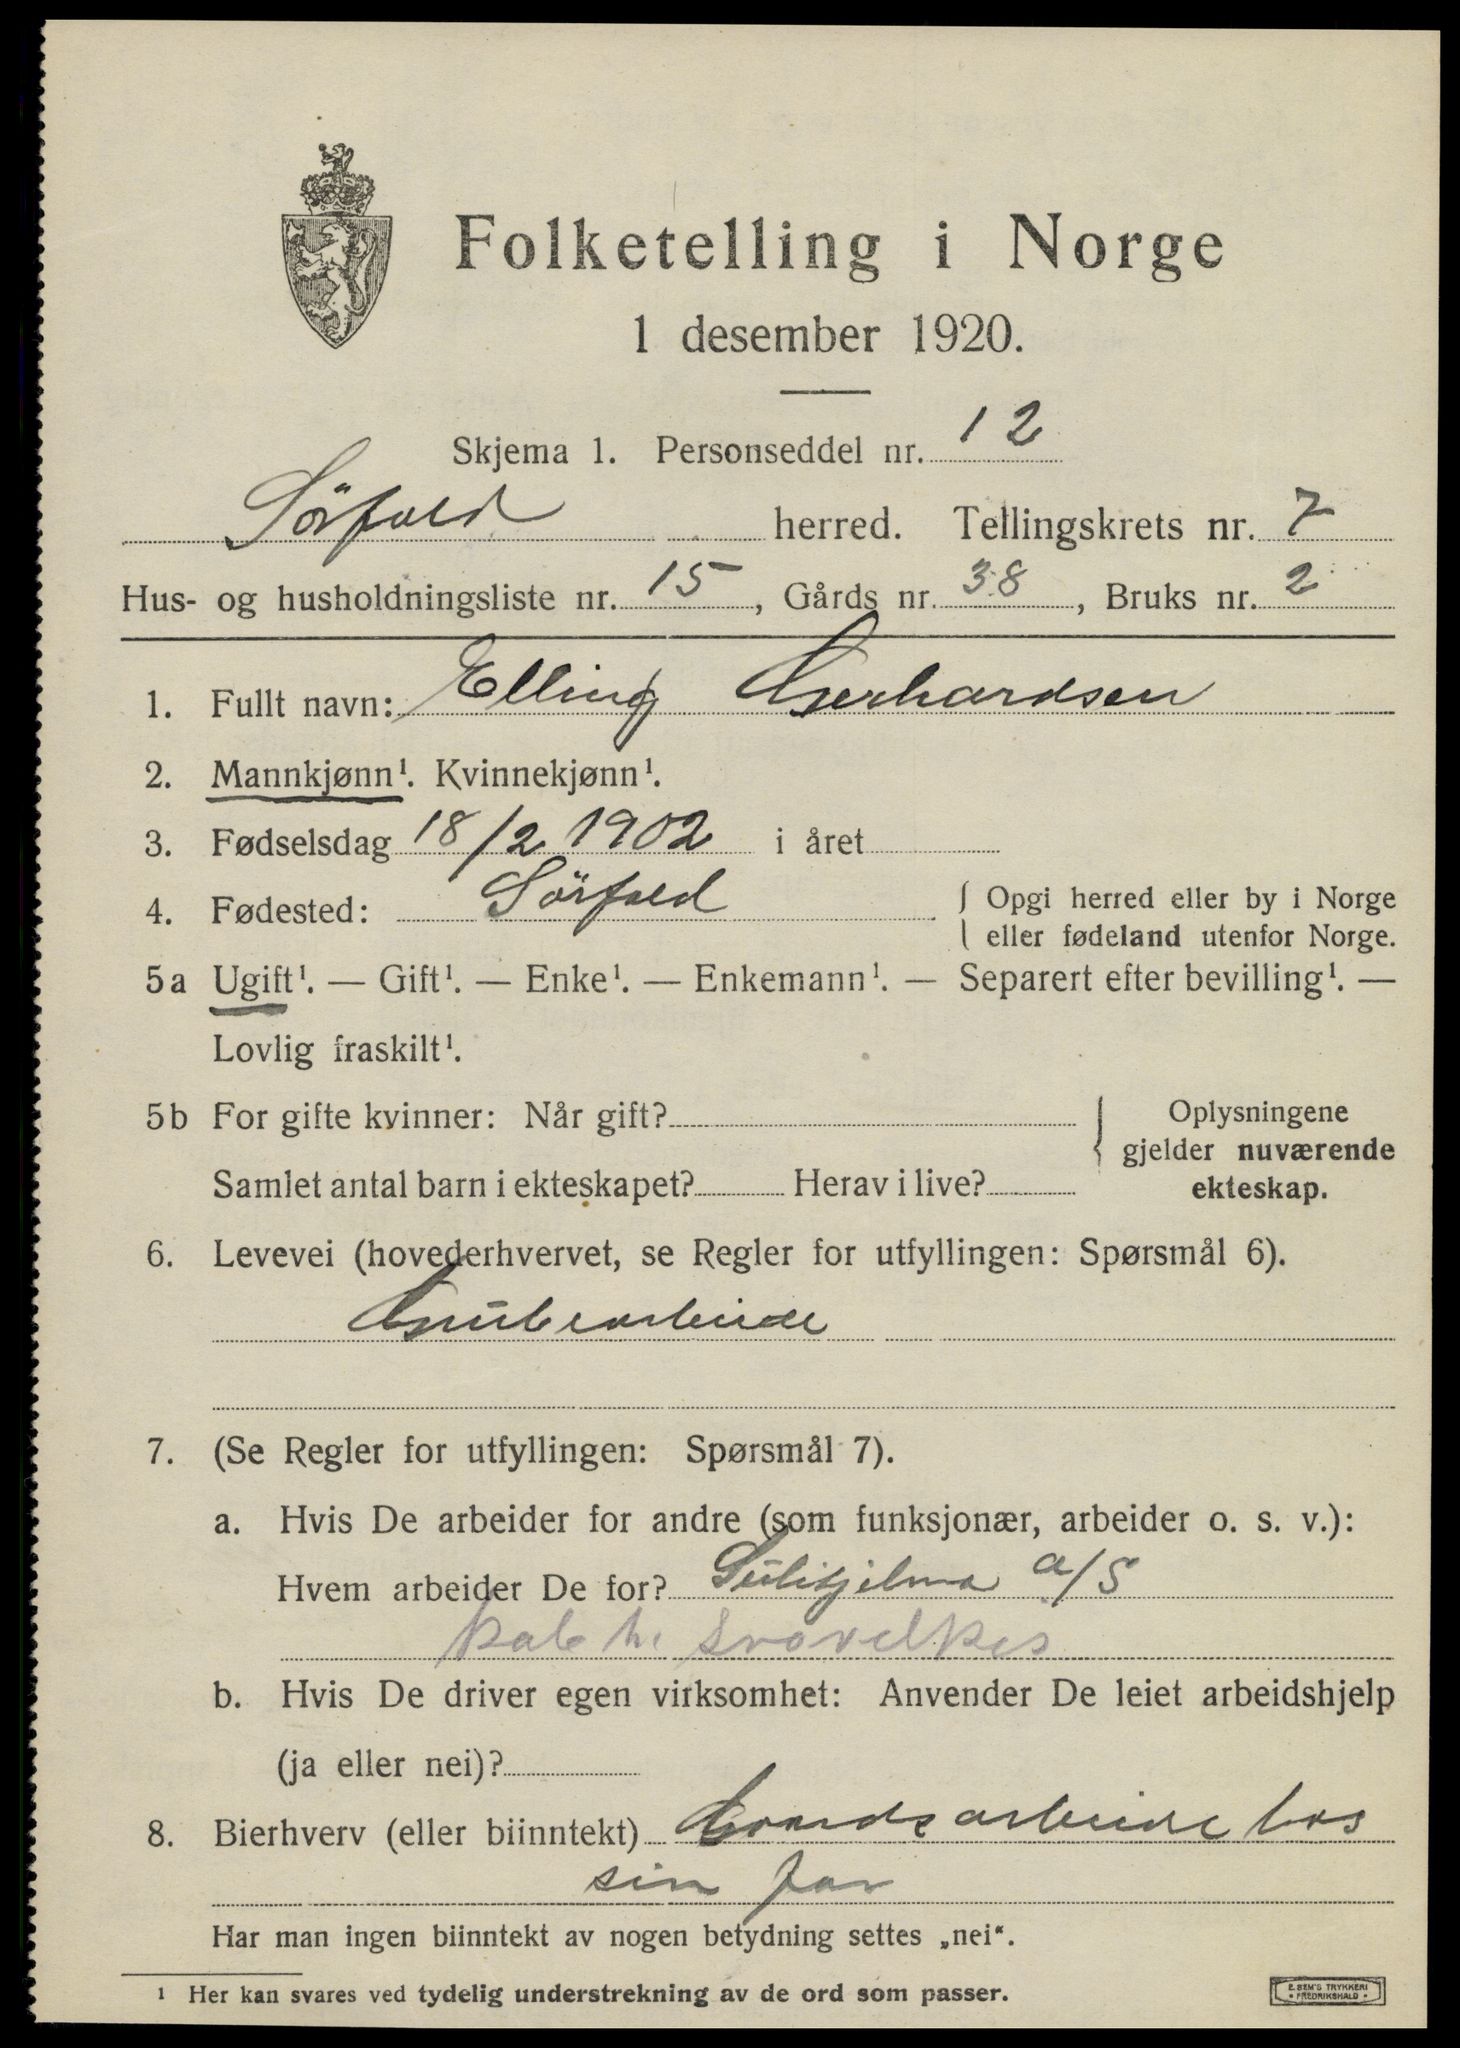 Folketelling i Norge
1 desember 1920.
Skjema 1. Personseddel nr. 12
Sörfold herred. Tellingskrets nr. 7
Hus- og husholdningsliste nr. 15, Gårds nr. 38, Bruks nr. 2
1. Fullt navn: Elling Gerhardsen
2. Mannkjønn¹. Kvinnekjønn¹.
3. Fødselsdag 18/2 1902 i året
4. Fødested: Sörfold { Opgi herred eller by i Norge
eller fødeland utenfor Norge.
5a Ugift¹. — Gift¹. — Enke¹. — Enkemann¹. — Separert efter bevilling¹. —
Lovlig fraskilt¹.
5b For gifte kvinner: Når gift?
Samlet antal barn i ekteskapet? Herav i live?
{ Oplysningene
gjelder nuværende
ekteskap.
6. Levevei (hovederhvervet, se Regler for utfyllingen: Spørsmål 6).
Grubearbeide
7. (Se Regler for utfyllingen: Spørsmål 7).
a. Hvis De arbeider for andre (som funksjonær, arbeider o. s. v.):
Hvem arbeider De for? Sulitjelma a/S
svovelkis
b. Hvis De driver egen virksomhet: Anvender De leiet arbeidshjelp
(ja eller nei)?
8. Bierhverv (eller biinntekt) Gaardsarbeide hos
sin far
Har man ingen biinntekt av nogen betydning settes „nei“.
¹ Her kan svares ved tydelig understrekning av de ord som passer.
E. SEM'S TRYKKERI
• FREDRIKSHALD •